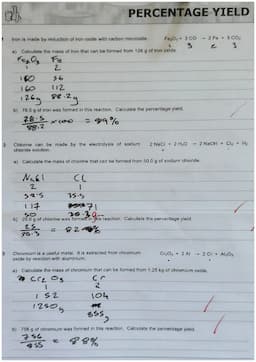 PERCENTAGE YIELD
Iron is made by reduction of iron oxide with carbon monoxide. Fe₂O₃ + 3 CO → 2 Fe + 3 CO₂
3 2 3
a) Calculate the mass of iron that can be formed from 126 g of iron oxide.
Fe₂O₃ Fe
1 2
160 56
160 112
126g 88.2g
b) 78.5 g of iron was formed in this reaction. Calculate the percentage yield.
78.5
88.2 ×100 = 89%
2 Chlorine can be made by the electrolysis of sodium chloride solution. 2 NaCl + 2 H₂O → 2 NaOH + Cl₂ + H₂
a) Calculate the mass of chlorine that can be formed from 50.0 g of sodium chloride.
NaCl Cl
2 1
58.5 35.5
117 71
50 30.3g
b) 25.0 g of chlorine was formed in this reaction. Calculate the percentage yield.
25
30.3 = 82%
3 Chromium is a useful metal. It is extracted from chromium oxide by reaction with aluminium. Cr₂O₃ + 2 Al → 2 Cr + Al₂O₃
a) Calculate the mass of chromium that can be formed from 1.25 kg of chromium oxide.
Cr₂O₃ Cr
1 2
152 104
1250g 855g
b) 756 g of chromium was formed in this reaction. Calculate the percentage yield.
756
855 = 88%